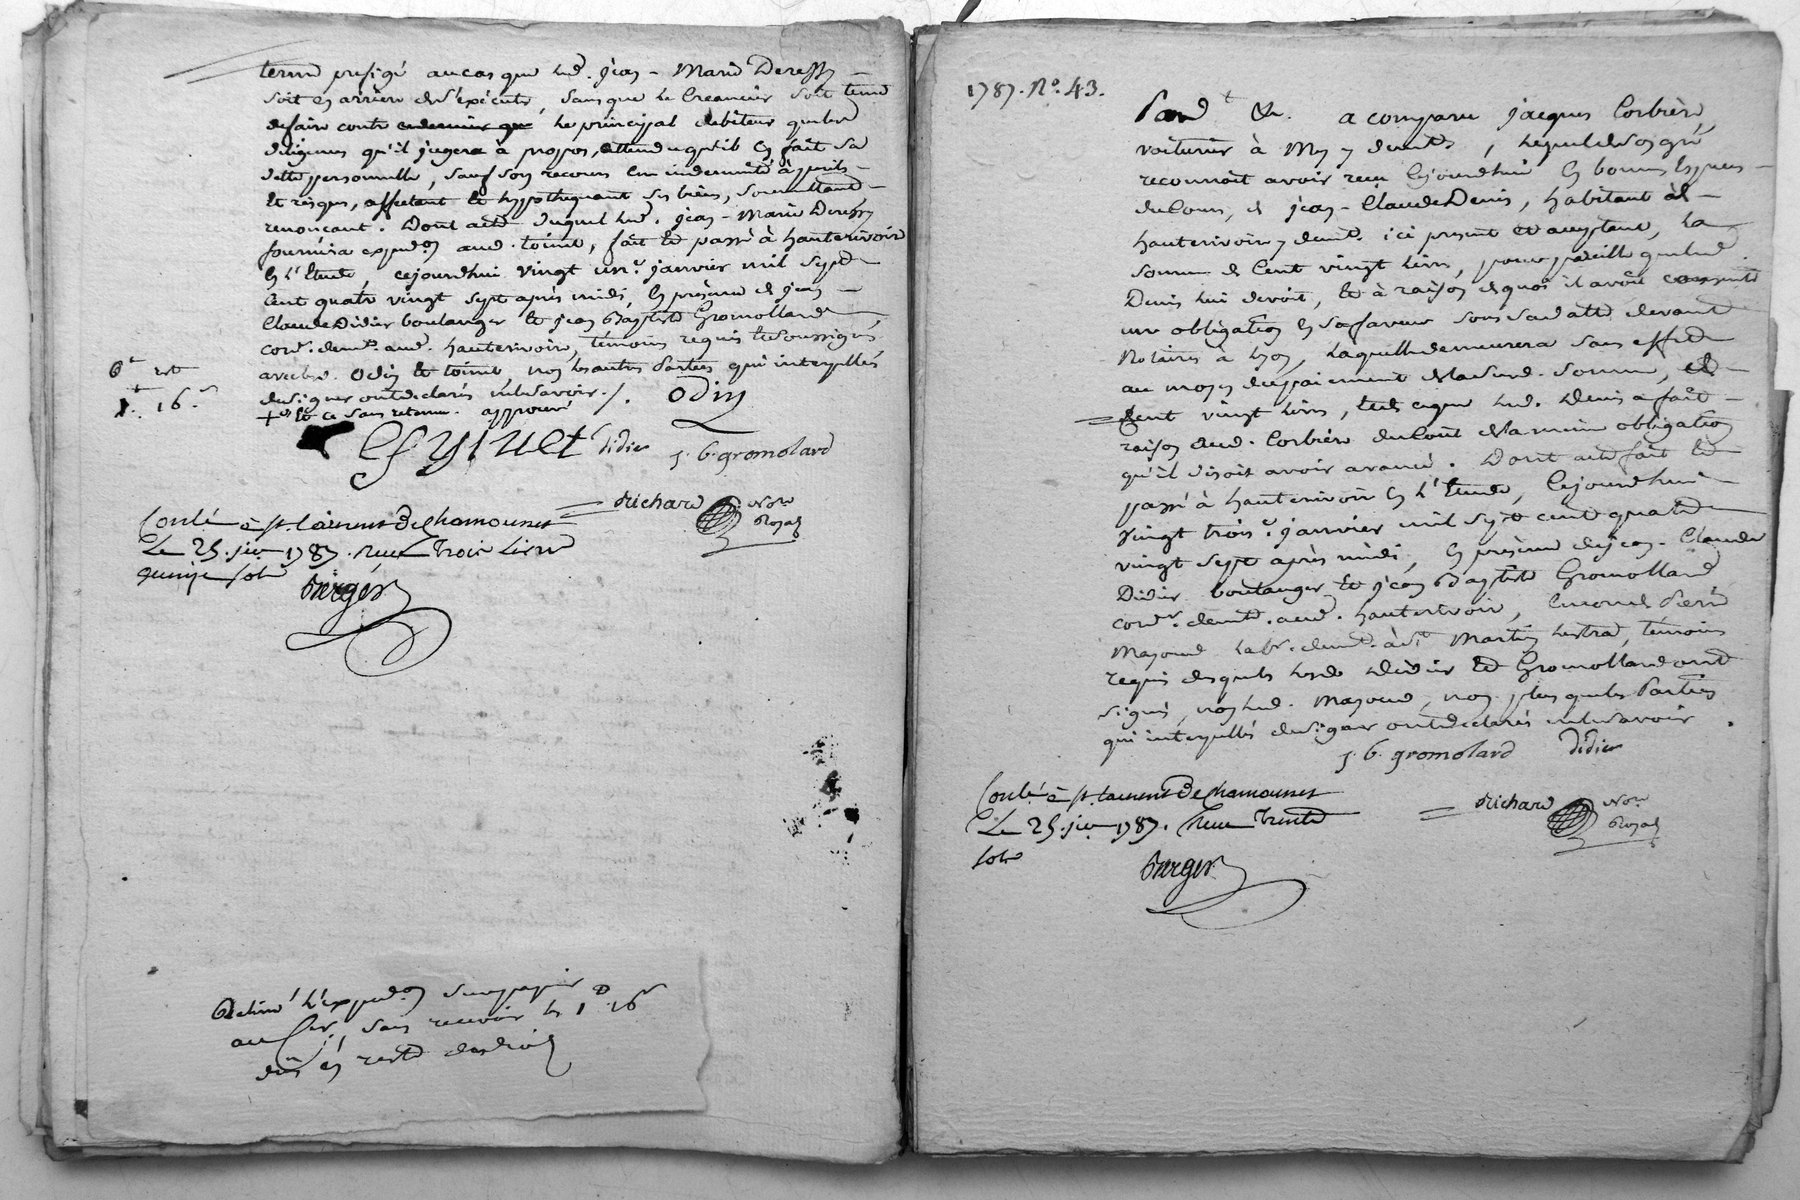 terme prefigé au cas que led. jean-Marie Deressy
soit en arriere de s'executer, sans que le Creancier soit tenu
de faire contre le principal debiteur que les
diligences qu'il jugera à propos, attendu qu'il en fait sa
dette personnelle, sauf son recours en indemnité à perils
et risques, affectant et hypothequant ses biens, soumettant
renonçant. Dont acte duquel led. jean-Marie Deressy
fournira expedon aud. toinet, fait et passé à hauterivoire
en l'Etude, cejourdhui vingt un janvier mil sept
cent quatre vingt sept après midi, en présence de jean
Claude Didier boulanger et jean Baptiste Gromolland
cordr. demts. aud. hauterivoire, témoins requis et soussignés
avec led. Odin et toinet non les autres Parties qui interpellés
de signer ont declarés ne le savoir ./.
+ et ce sans retenue. approuvé
odin
6 est
1 16 s
didier j. b. gromolard
Richard Nore
Royal
Conlé à st. laurent De Chamousset
Le 25. jer. 1787. reçu trois livres
quinze sols
berger
Delivré l'expedon sur papier
sans recevoir les 1 16 s
dûs en reste des droits
1787. No. 43.
Pardt &c. a comparu jacques Corbière
voiturier à Mey y demt., lequel de son gré
reconnoit avoir reçu cejourdhui en bonnes especes
du Cours, de jean-Claude Denis, habitant de
hauterivoire y demt. ici present et acceptant, la
somme de Cent vingt livres, pour pareille que led.
Denis lui devoit, et à raison de quoi il avoit consenti
une obligation en sa faveur sous sa datte devant
Notaires à Lyon, laquelle demeurera sans effet
au moyen du paiement de la susd. somme, de
Cent vingt livres, led. Denis a fait
raison aud. Corbière du Coût de la meme obligation
qu'il disoit avoir avancé. Dont acte fait et
passé à hauterivoire en l'Etude, Cejourdhui
vingt trois janvier mil sept cent quatre
vingt sept après midi, en présence de jean-Claude
Didier boulanger et jean Baptiste Gromolland
cordr. demts. aud. hauterivoire, encore de Pierre
Mayoud labr. demt. à st. Martin lestra, témoins
requis desquels lesd. Didier et Gromolland ont
signé, non led. Mayoud, non plus que les Parties
qui interpellés de signer ont declarés ne le savoir.
j. b. gromolard didier
Conlé à st. laurent De Chamousset
Le 25. jer. 1787. Reçu Trente
sols
Richard Nore
Royal
berger